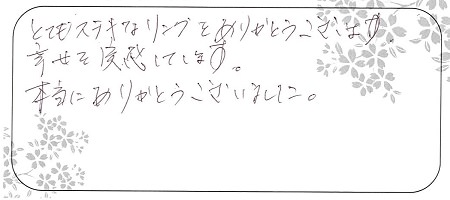 とてもステキなリングをありがとうございます。
幸せを実感してします。
本当にありがとうございました。